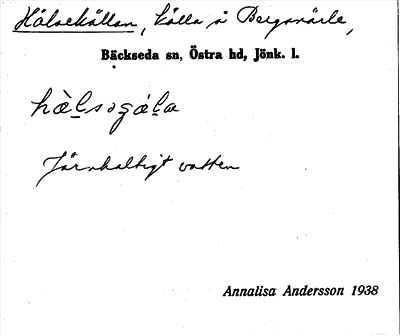 Hälsekällan, källa å Bergsnärle,
Bäckseda sn, Östra hd, Jönk. l.
hàlsəgála
Järnhaltigt vatten
Annalisa Andersson 1938